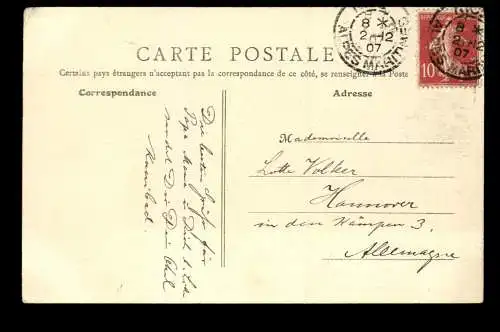 CARTE POSTALE
Certains pays étrangers n'acceptant pas la correspondance de ce côté, se renseigner à la Poste
Correspondance
Adresse
8
2 - 12
07
ALPES MARITIMES
10
Die besten Grüße für
Papa Mama u. Dich
sendet Dir Dein
Mademoiselle
Lotte Volker
Hannover
in den Kämpen 3.
Allemagne